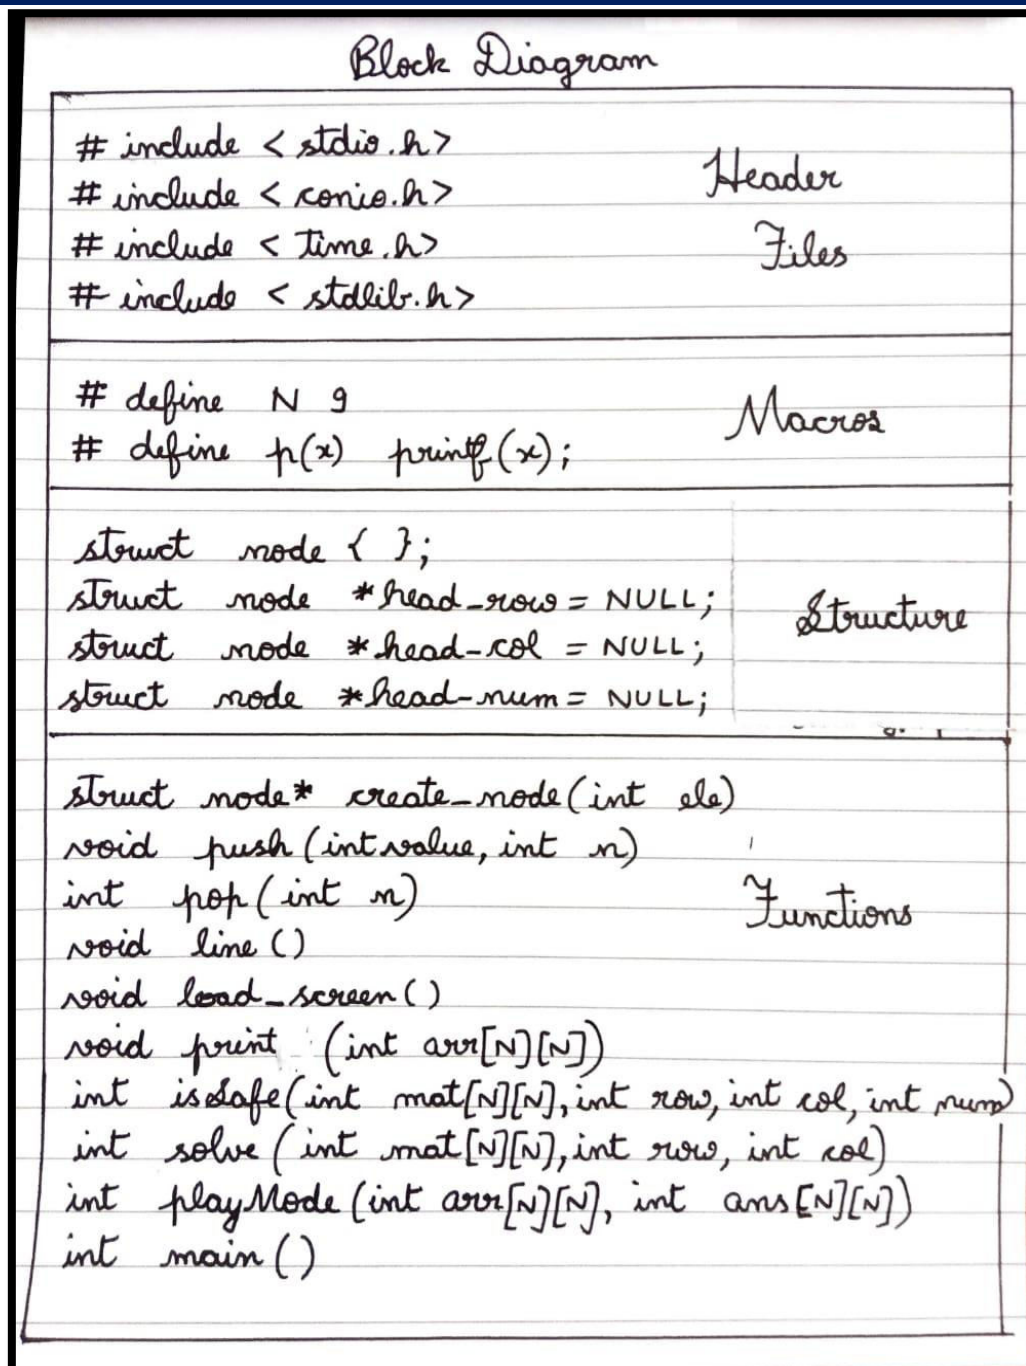 Block Diagram
# include < stdio.h>
# include < conio.h>
Header
# include < time.h>
Files
# include < stdlib.h>
# define N 9
Macros
# define p(x) printf(x);
struct node { };
struct node *head_row = NULL;
Structure
struct node *head-col = NULL;
struct node *head-num = NULL;
struct node* create_node(int ele)
void push (int value, int n)
int pop (int n)
Functions
void line ()
void load_screen()
void print (int arr[N][N])
int isSafe(int mat[N][N], int row, int col, int num)
int solve (int mat[N][N], int row, int col)
int playMode (int arr[N][N], int ans[N][N])
int main ()